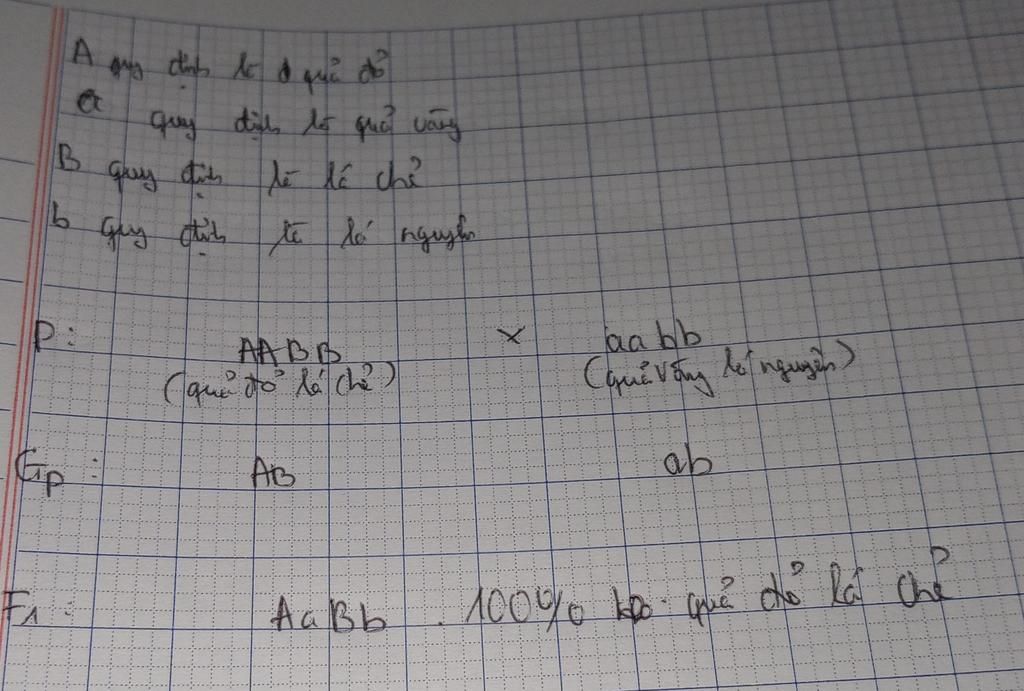 A quy định quả đỏ
a quy định quả vàng
B quy định lá chẻ
b quy định lá nguyên
P: AABB × aabb
(quả đỏ lá chẻ) (quả vàng lá nguyên)
Gp: AB ab
F1: AaBb. 100% quả đỏ lá chẻ